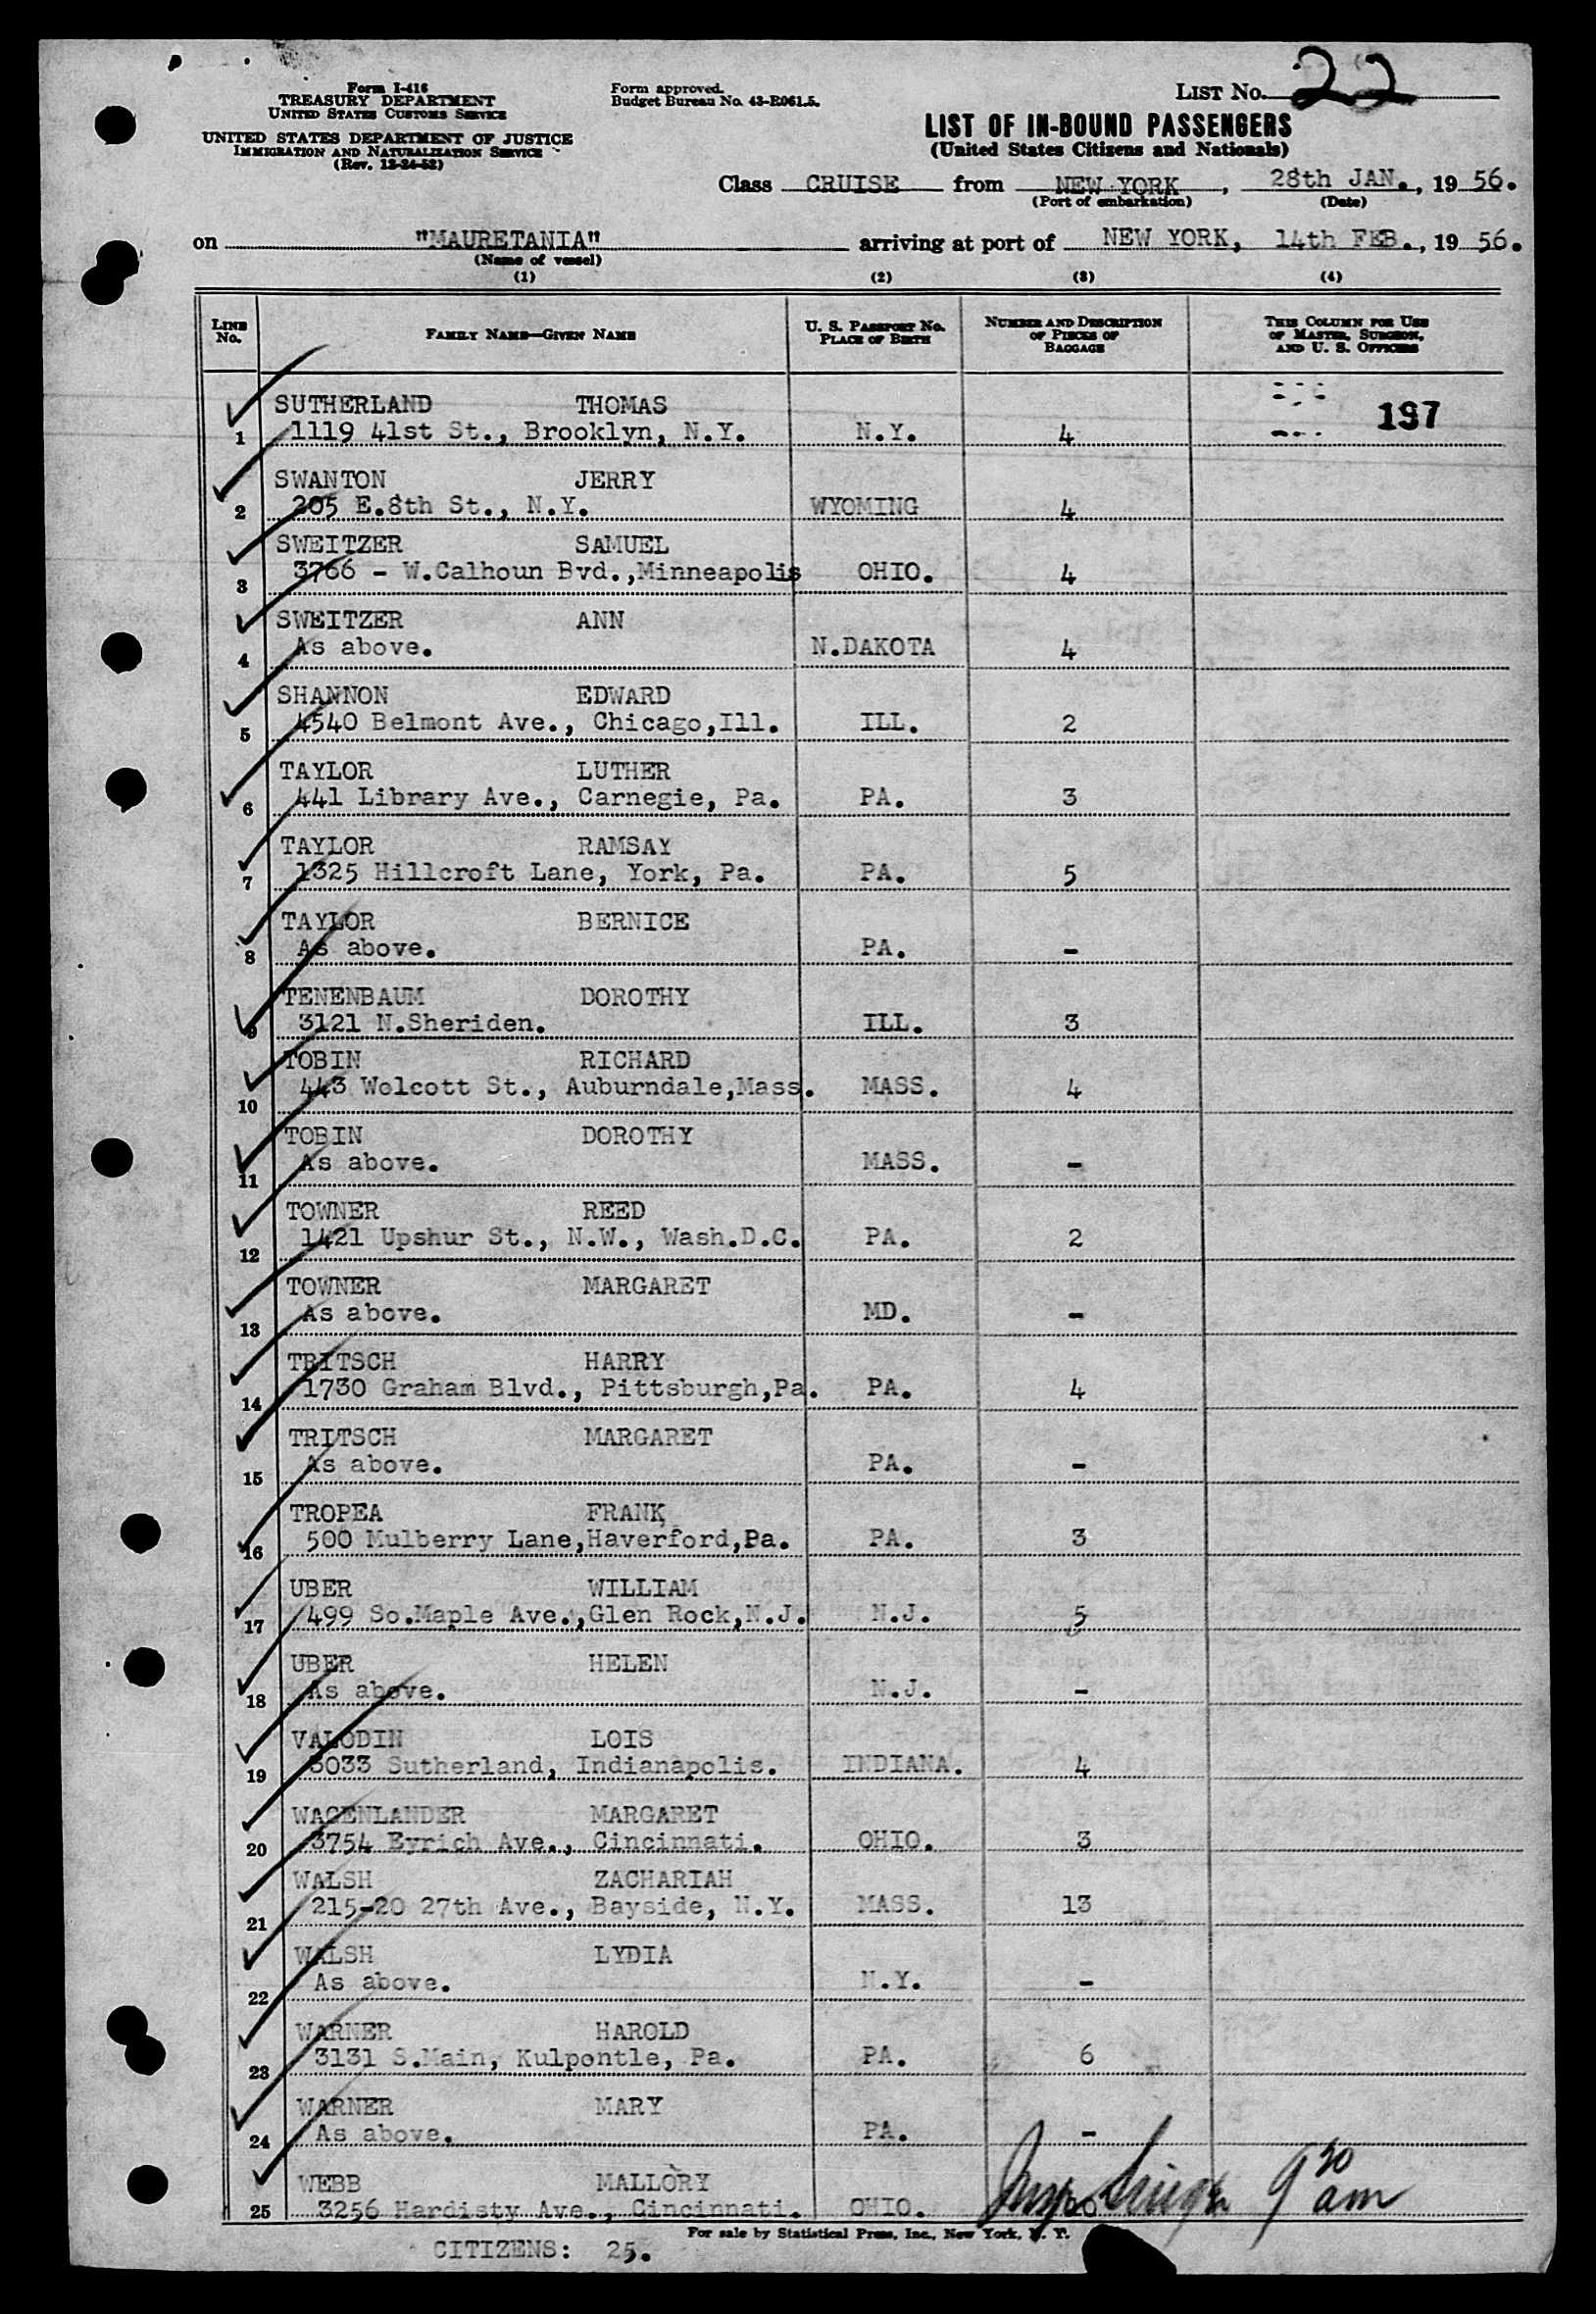 Form I-416
TREASURY DEPARTMENT
UNITED STATES CUSTOMS SERVICE
UNITED STATES DEPARTMENT OF JUSTICE
IMMIGRATION AND NATURALIZATION SERVICE
(Rev. 12-24-52)
Form approved.
Budget Bureau No. 43-R061.5.
LIST NO. 22
LIST OF IN-BOUND PASSENGERS
(United States Citizens and Nationals)
Class CRUISE from NEW YORK, 28th JAN., 19 56.
(Port of embarkation) (Date)
on "MAURETANIA" arriving at port of NEW YORK, 14th FEB., 19 56.
(Name of vessel)
(1) (2) (3) (4)
LINE No. FAMILY NAME—GIVEN NAME U. S. PASSPORT No. PLACE OF BIRTH NUMBER AND DESCRIPTION OF PIECES OF BAGGAGE THIS COLUMN FOR USE OF MASTER, SURGEON, AND U. S. OFFICERS
SUTHERLAND THOMAS 197
1 1119 41st St., Brooklyn, N.Y. N.Y. 4
SWANTON JERRY
2 205 E.8th St., N.Y. WYOMING 4
SWEITZER SAMUEL
3 3766 - W.Calhoun Bvd.,Minneapolis OHIO. 4
SWEITZER ANN
4 As above. N.DAKOTA 4
SHANNON EDWARD
5 4540 Belmont Ave., Chicago,Ill. ILL. 2
TAYLOR LUTHER
6 441 Library Ave., Carnegie, Pa. PA. 3
TAYLOR RAMSAY
7 1325 Hillcroft Lane, York, Pa. PA. 5
TAYLOR BERNICE
8 As above. PA. -
TENENBAUM DOROTHY
9 3121 N.Sheriden. ILL. 3
TOBIN RICHARD
10 443 Wolcott St., Auburndale,Mass. MASS. 4
TOBIN DOROTHY
11 As above. MASS. -
TOWNER REED
12 1421 Upshur St., N.W., Wash.D.C. PA. 2
TOWNER MARGARET
13 As above. MD. -
TRITSCH HARRY
14 1730 Graham Blvd., Pittsburgh,Pa. PA. 4
TRITSCH MARGARET
15 As above. PA. -
TROPEA FRANK
16 500 Mulberry Lane,Haverford,Pa. PA. 3
UBER WILLIAM
17 499 So.Maple Ave.,Glen Rock,N.J. N.J. 5
UBER HELEN
18 As above. N.J. -
VALODIN LOIS
19 3033 Sutherland, Indianapolis. INDIANA. 4
WAGENLANDER MARGARET
20 3754 Eyrich Ave., Cincinnati. OHIO. 3
WALSH ZACHARIAH
21 215-20 27th Ave., Bayside, N.Y. MASS. 13
WALSH LYDIA
22 As above. N.Y. -
WARNER HAROLD
23 3131 S.Main, Kulpontle, Pa. PA. 6
WARNER MARY
24 As above. PA. -
WEBB MALLORY 9 30 am
25 3256 Hardisty Ave., Cincinnati. OHIO.
For sale by Statistical Press, Inc., New York, N. Y.
CITIZENS: 25.